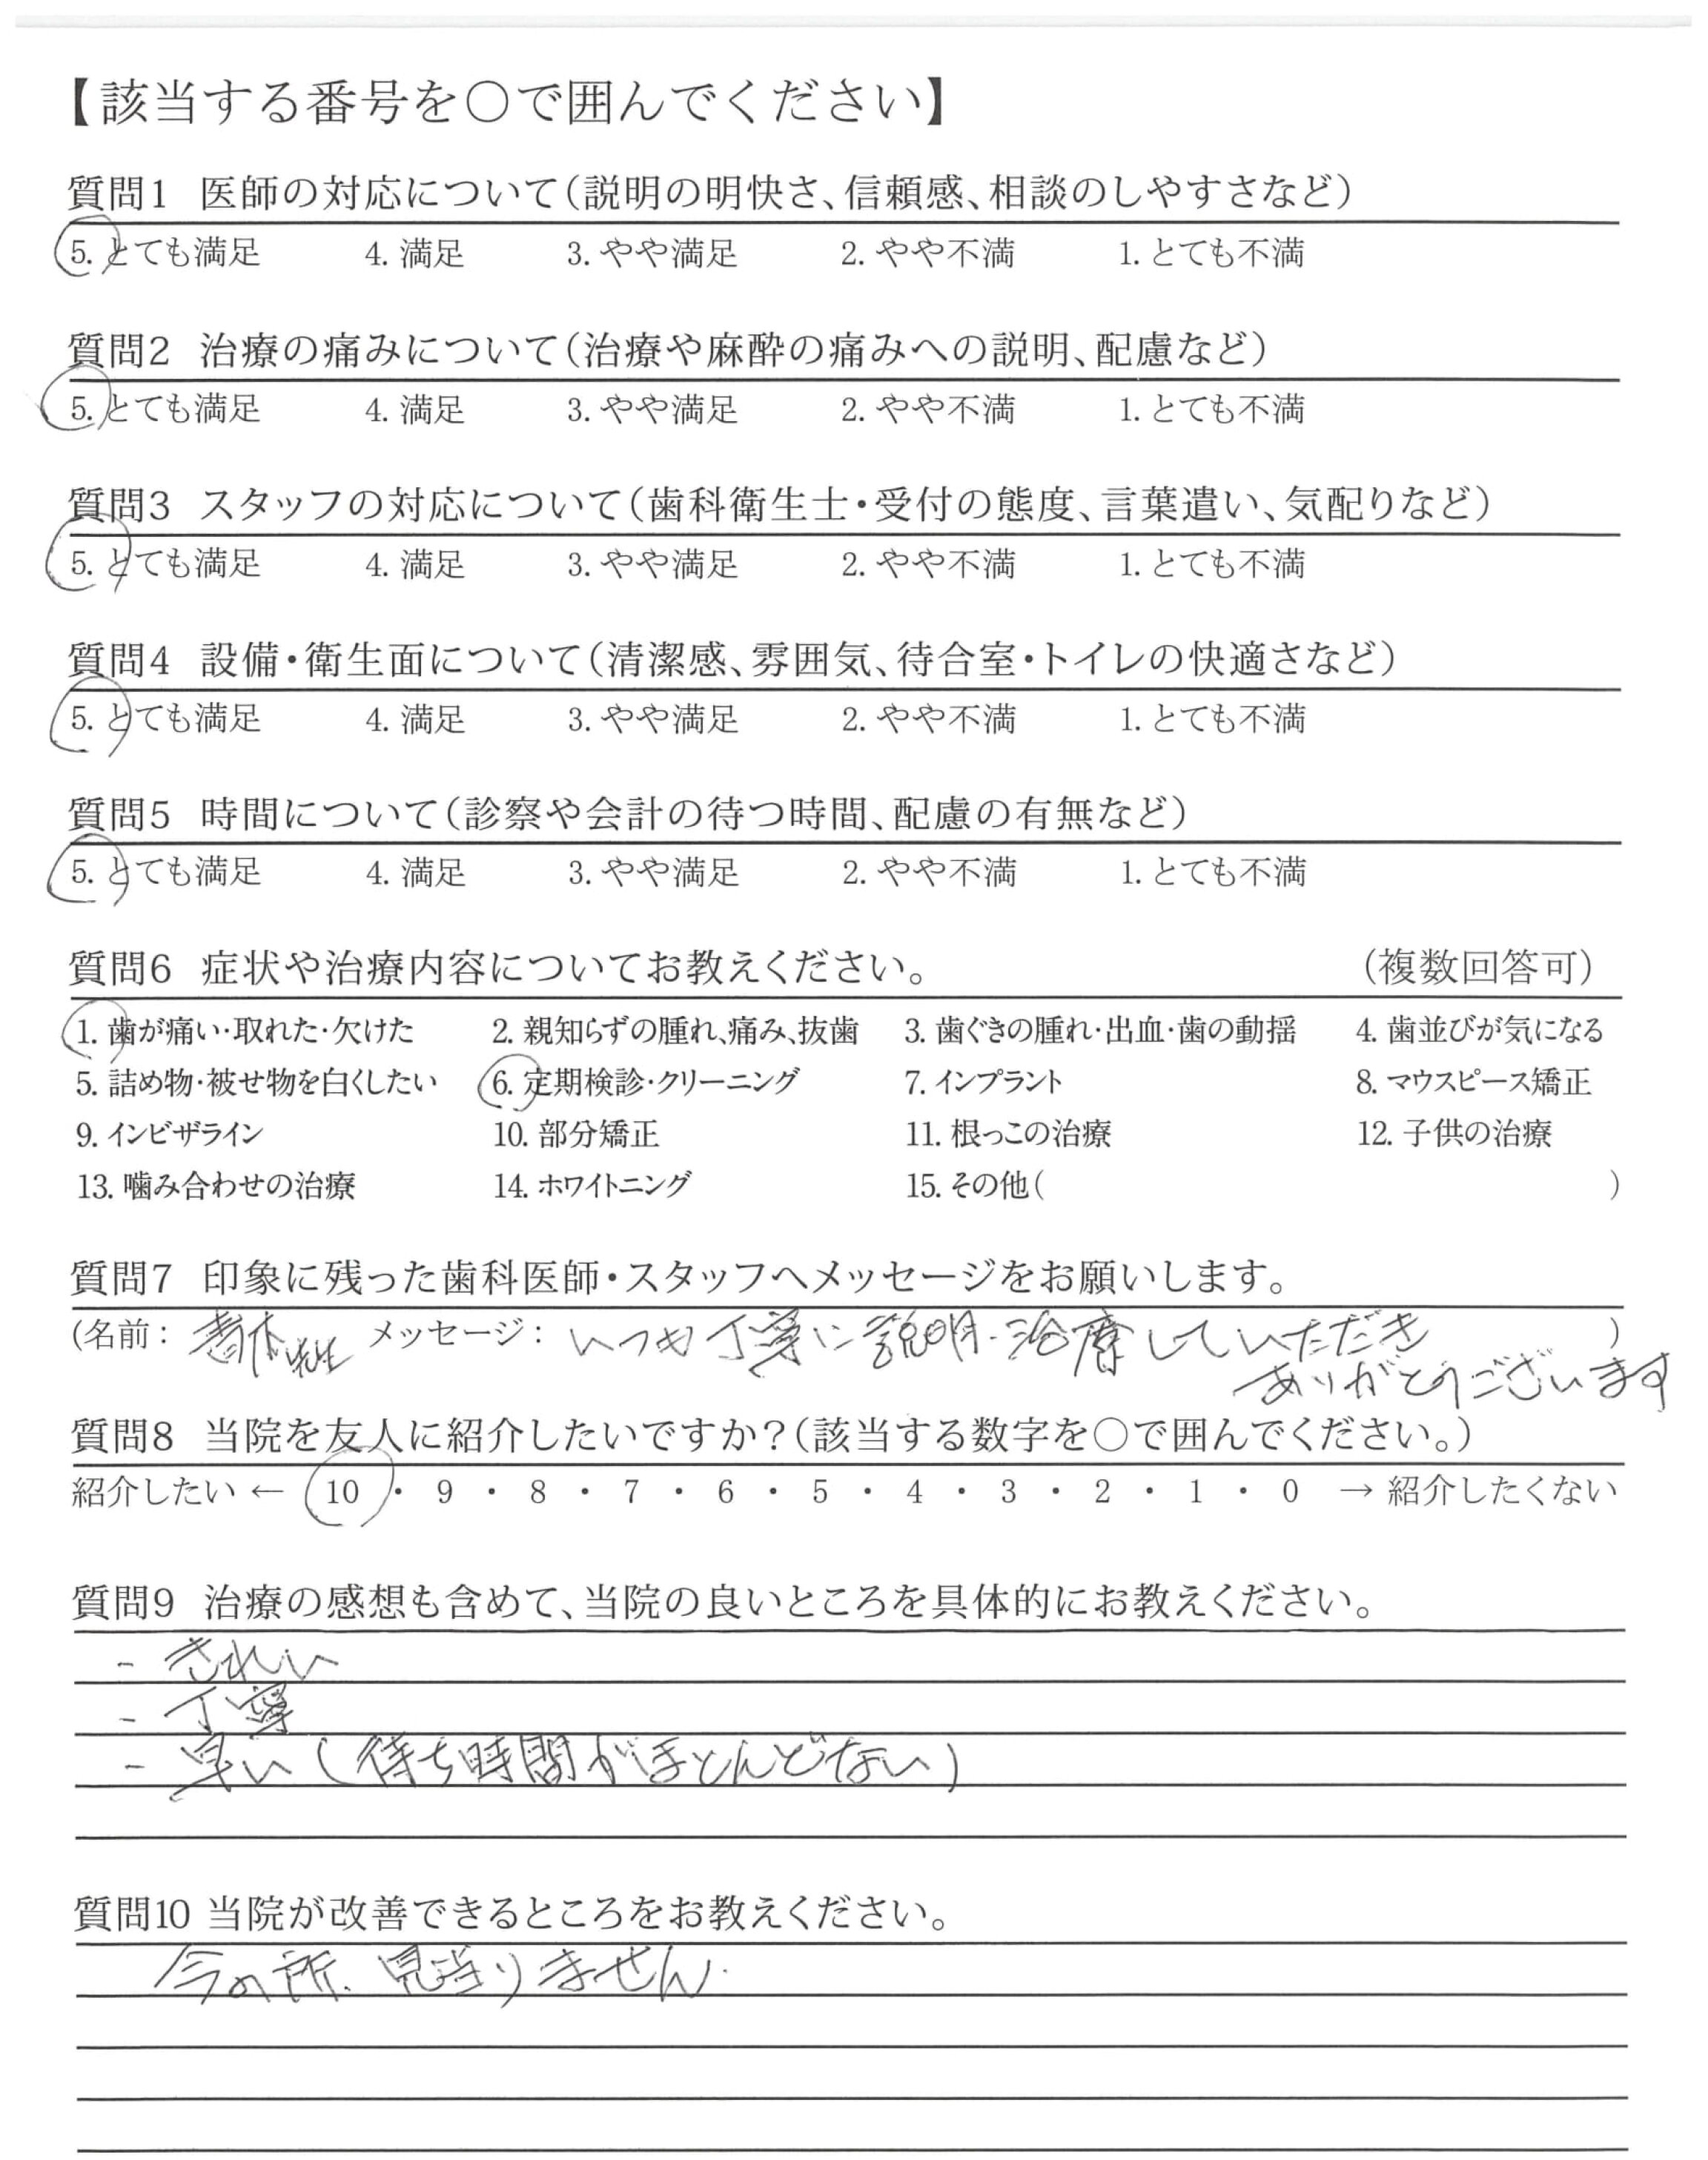 【該当する番号を○で囲んでください】
質問1 医師の対応について(説明の明快さ、信頼感、相談のしやすさなど)
5. とても満足 4. 満足 3. やや満足 2. やや不満 1. とても不満
質問2 治療の痛みについて(治療や麻酔の痛みへの説明、配慮など)
5. とても満足 4. 満足 3. やや満足 2. やや不満 1. とても不満
質問3 スタッフの対応について(歯科衛生士・受付の態度、言葉遣い、気配りなど)
5. とても満足 4. 満足 3. やや満足 2. やや不満 1. とても不満
質問4 設備・衛生面について(清潔感、雰囲気、待合室・トイレの快適さなど)
5. とても満足 4. 満足 3. やや満足 2. やや不満 1. とても不満
質問5 時間について(診察や会計の待つ時間、配慮の有無など)
5. とても満足 4. 満足 3. やや満足 2. やや不満 1. とても不満
質問6 症状や治療内容についてお教えください。 (複数回答可)
1. 歯が痛い・取れた・欠けた 2. 親知らずの腫れ、痛み、抜歯 3. 歯ぐきの腫れ・出血・歯の動揺 4. 歯並びが気になる
5. 詰め物・被せ物を白くしたい 6. 定期検診・クリーニング 7. インプラント 8. マウスピース矯正
9. インビザライン 10. 部分矯正 11. 根っこの治療 12. 子供の治療
13. 噛み合わせの治療 14. ホワイトニング 15. その他( )
質問7 印象に残った歯科医師・スタッフへメッセージをお願いします。
(名前: 先生 メッセージ: いつも丁寧に説明・治療していただき )
ありがとうございます
質問8 当院を友人に紹介したいですか?(該当する数字を○で囲んでください。)
紹介したい ← 10 ・ 9 ・ 8 ・ 7 ・ 6 ・ 5 ・ 4 ・ 3 ・ 2 ・ 1 ・ 0 → 紹介したくない
質問9 治療の感想も含めて、当院の良いところを具体的にお教えください。
- きれい
- 丁寧
- 早い(待ち時間がほとんどない)
質問10 当院が改善できるところをお教えください。
今の所、見当りません.